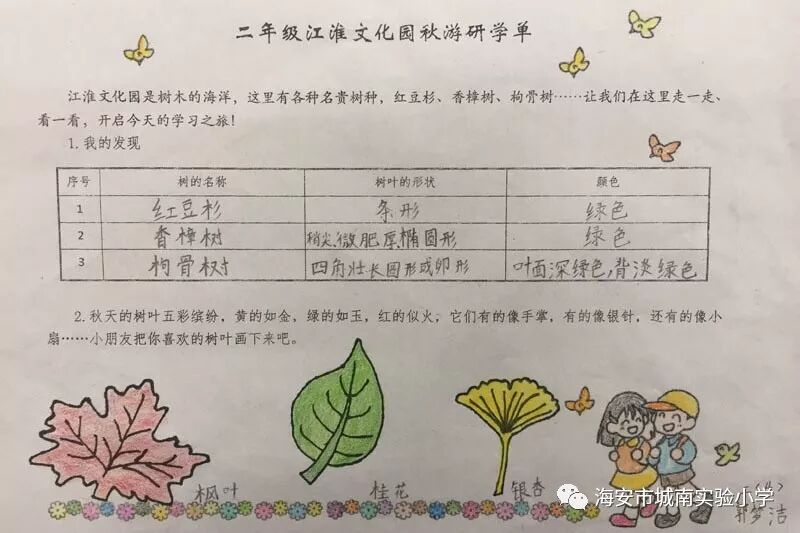 二年级江淮文化园秋游研学单
江淮文化园是树木的海洋，这里有各种名贵树种，红豆杉、香樟树、枸骨树……让我们在这里走一走、
看一看，开启今天的学习之旅！
1. 我的发现
序号 树的名称 树叶的形状 颜色
1 红豆杉 条形 绿色
2 香樟树 稍尖,微肥厚,椭圆形 绿色
3 枸骨树 四角壮长圆形或卵形 叶面深绿色,背淡绿色
2. 秋天的树叶五彩缤纷，黄的如金，绿的如玉，红的似火，它们有的像手掌，有的像银针，还有的像小
扇……小朋友把你喜欢的树叶画下来吧。
枫叶 桂花 银杏
海安市城南实验小学
梦洁